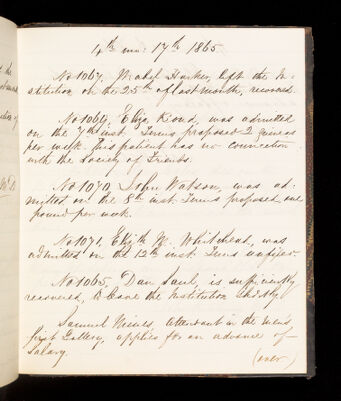 4th mo: 17th 1865
No 1067, Mabel Harker, left the In-
stitution on the 25th of last month, recovd.
No 1069, Eliza Kind, was admitted
on the 7th inst. Terms proposed 2 guineas
per week. This patient has no connection
with the Society of Friends.
No 1070, John Watson, was ad-
mitted on the 8th inst. Terms proposed one
pound per week.
No 1071, Elizth M. Whitehead, was
admitted on the 12th inst. Terms
No 1065, Dan Saul, is sufficiently
recovered, to leave the Institution shortly.
Samuel Nines, attendant in the men's
first Gallery, applies for an advance of
Salary.
(over)